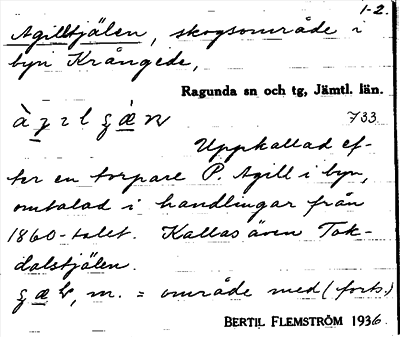 1-2.
Agilltjälen, skogsområde i
byn Krångede,
Ragunda sn och tg, Jämtl. län.
733
Uppkallad ef-
ter en torpare P. Agill i byn,
omtalad i handlingar från
1860-talet. Kallas även Tok-
dalstjälen.
m. = område med (forts.)
BERTIL FLEMSTRÖM 1936